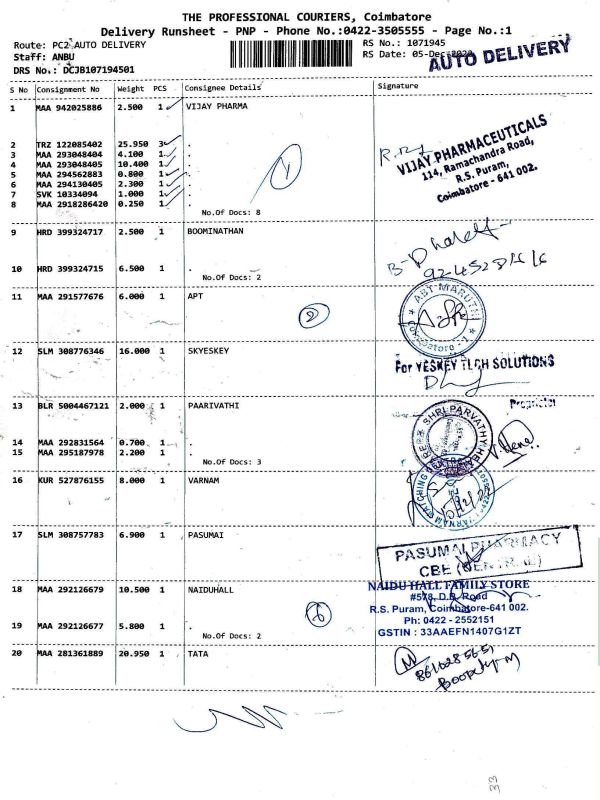 THE PROFESSIONAL COURIERS, Coimbatore
Delivery Runsheet - PNP - Phone No.:0422-3505555 - Page No.:1
Route: PC2 AUTO DELIVERY
RS No.: 1071945
Staff: ANBU
RS Date: 05-Dec-
AUTO DELIVERY
DRS No.: DCJB107194501
S No Consignment No Weight PCS Consignee Details Signature
1 MAA 942025886 2.500 1 VIJAY PHARMA
2 TRZ 122085402 25.950 3 .
3 MAA 293048404 4.100 1 .
4 MAA 293048405 10.400 1 .
5 MAA 294562883 0.800 1 .
6 MAA 294130405 2.300 1 .
7 SVK 10334094 1.000 1 .
8 MAA 2918286420 0.250 1 .
No.Of Docs: 8
1
VIJAY PHARMACEUTICALS
114, Ramachandra Road,
R.S. Puram,
Coimbatore - 641 002.
9 HRD 399324717 2.500 1 BOOMINATHAN
10 HRD 399324715 6.500 1 .
No.Of Docs: 2
11 MAA 291577676 6.000 1 APT
2
ABT MARUTHI
12 SLM 308776346 16.000 1 SKYESKEY
For YESKEY TECH SOLUTIONS
Proprietor
13 BLR 5004467121 2.000 1 PAARIVATHI
14 MAA 292831564 0.700 1 .
15 MAA 295187978 2.200 1 .
No.Of Docs: 3
16 KUR 527876155 8.000 1 VARNAM
17 SLM 308757783 6.900 1 PASUMAI
PASUMAI PHARMACY
CBE (CENTRAL)
18 MAA 292126679 10.500 1 NAIDUHALL
19 MAA 292126677 5.800 1 .
No.Of Docs: 2
NAIDU HALL FAMILY STORE
#578, D.B. Road
R.S. Puram, Coimbatore-641 002.
Ph: 0422 - 2552151
GSTIN : 33AAEFN1407G1ZT
20 MAA 281361889 20.950 1 TATA